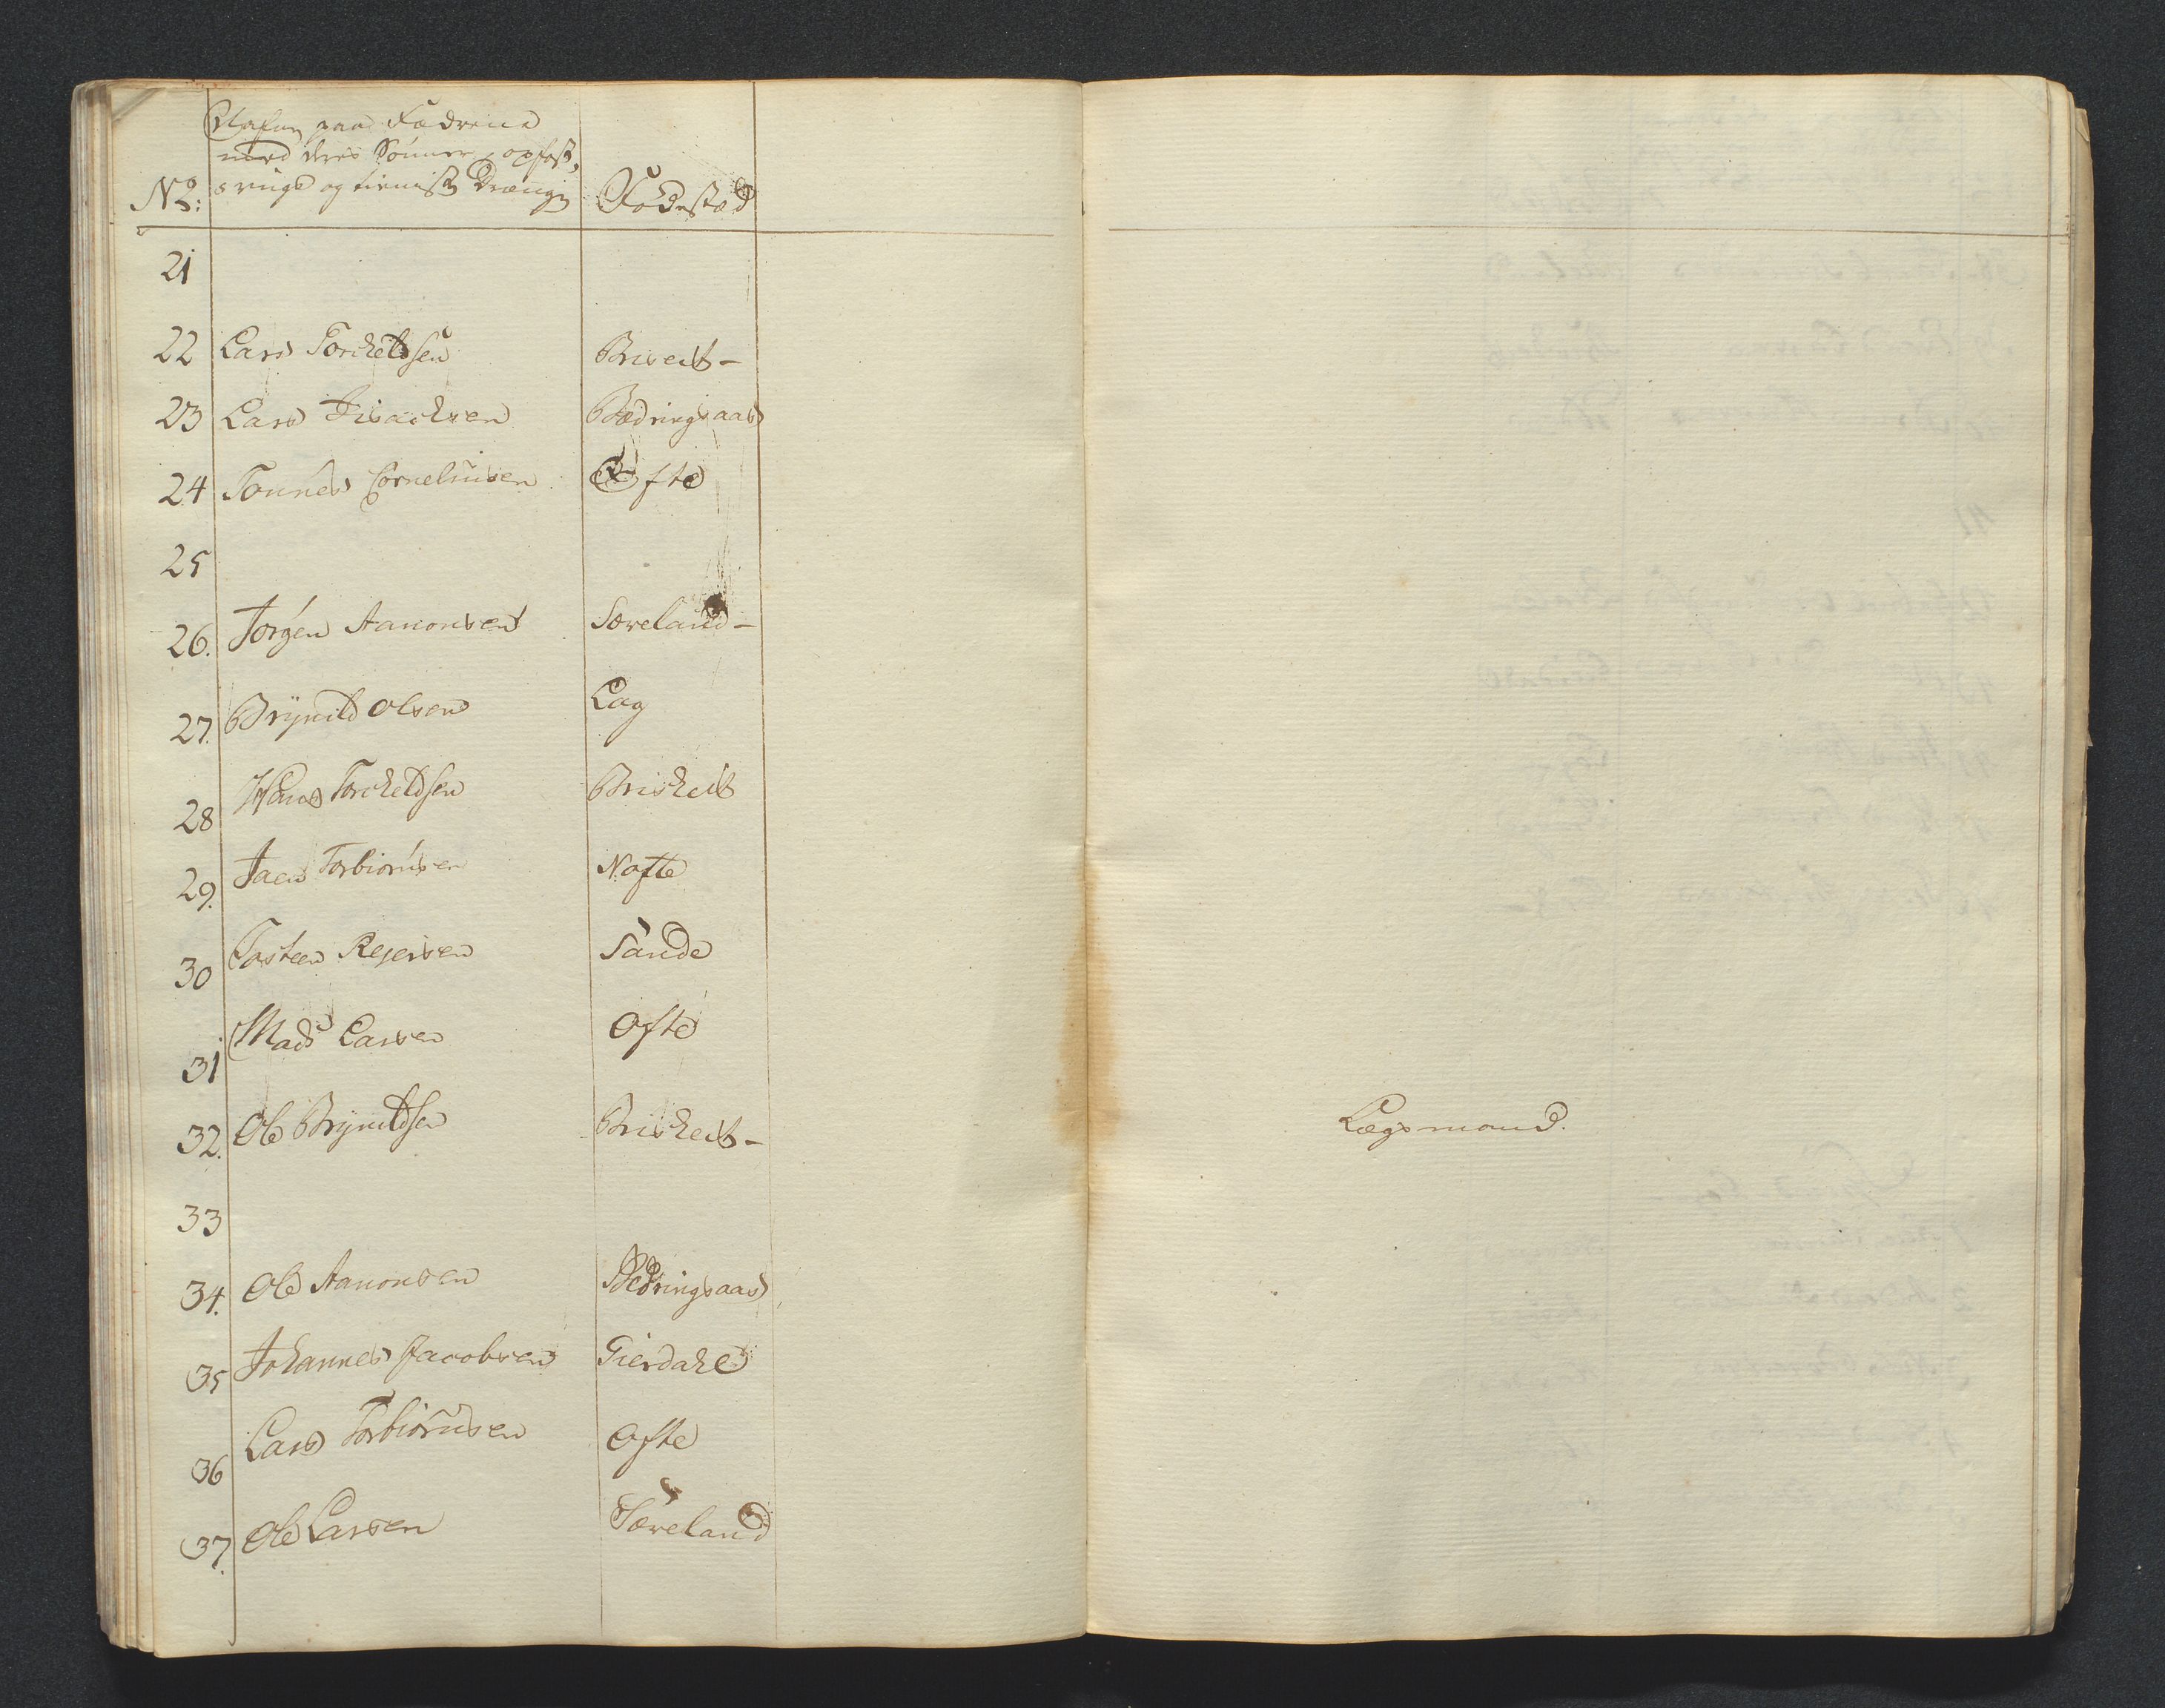 Nafn paa Fædrene
med deres Sönner, opfost,
No: rings og tienist Drænge Födestæd
21
22 Lars Torkelsen Briseit -
23 Lars Isachsen Bædringsaas
24 Tönnes Corneliusen Ofte
25
26. Jörgen Aanonsen Sæveland -
27. Brynild Olsen Lag
28 Hans Torkeldsen Briskeit
29. Jaen Torbiörnsen Nofte
30 Tosteen Rejersen Sande
31 Mads Larsen Ofte
32. Ole Brynildsen Briskeit - Lægsmand.
33
34. Ole Aanonsen Bedringsaas
35 Johannes Jacobsen Gierdahl
36 Lars Torbiörnsen Ofte
37. Ole Larsen Sæveland